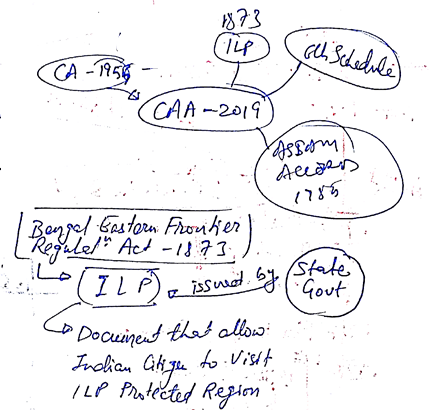 1873
ILP
6th Schedule
CA - 1955 -
CAA - 2019
ASSAM
ACCORD
1985
Bengal Eastern Frontier
Regulatn Act - 1873
ILP issued by State
Govt
Document that allow
Indian Citizen to Visit
ILP Protected Region